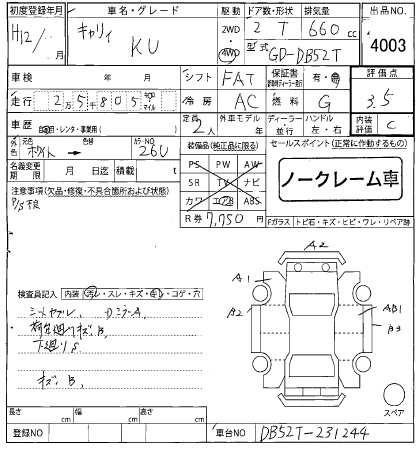 初度登録年月 車名・グレード 駆動 ドア数・形状 排気量 出品NO.
H12/ 月 キャリィ KU 2WD 4WD 2 T 660 cc 4003
型式 GD-DB52T
車検 年 月 シフト FAT 保証書 有・無 評価点
走行 2万5千805 km マイル 冷房 AC 燃料 G 3.5
車歴 自家・レンタ・事業用( ) 定員 2人 外車モデル 年 ディーラー 並行 ハンドル 左・右 内装評価 C
外色 元色 ホワイト → 色替 カラーNO. 26U
装備品(純正品に限る) セールスポイント(正常に作動するもの)
PS PW AW
名義変更期限 月 日迄 積載 t
SR TV ナビ
ノークレーム車
注意事項(欠品・修復・不具合箇所および状態)
カワ エアB ABS
P/S不良
R券 7,750 円
Fガラス トビ石・キズ・ヒビ・ワレ・リペア跡
A2
A1
B2
AB1
B3
検査員記入 内装 汚レ・スレ・キズ・切・コゲ・穴
シートヤブレ、DミラーA、
荷台廻りキズ、B、
下廻りS
キズ、B、
スペア
長さ cm 幅 cm 高さ cm
登録NO 車台NO DB52T-231244